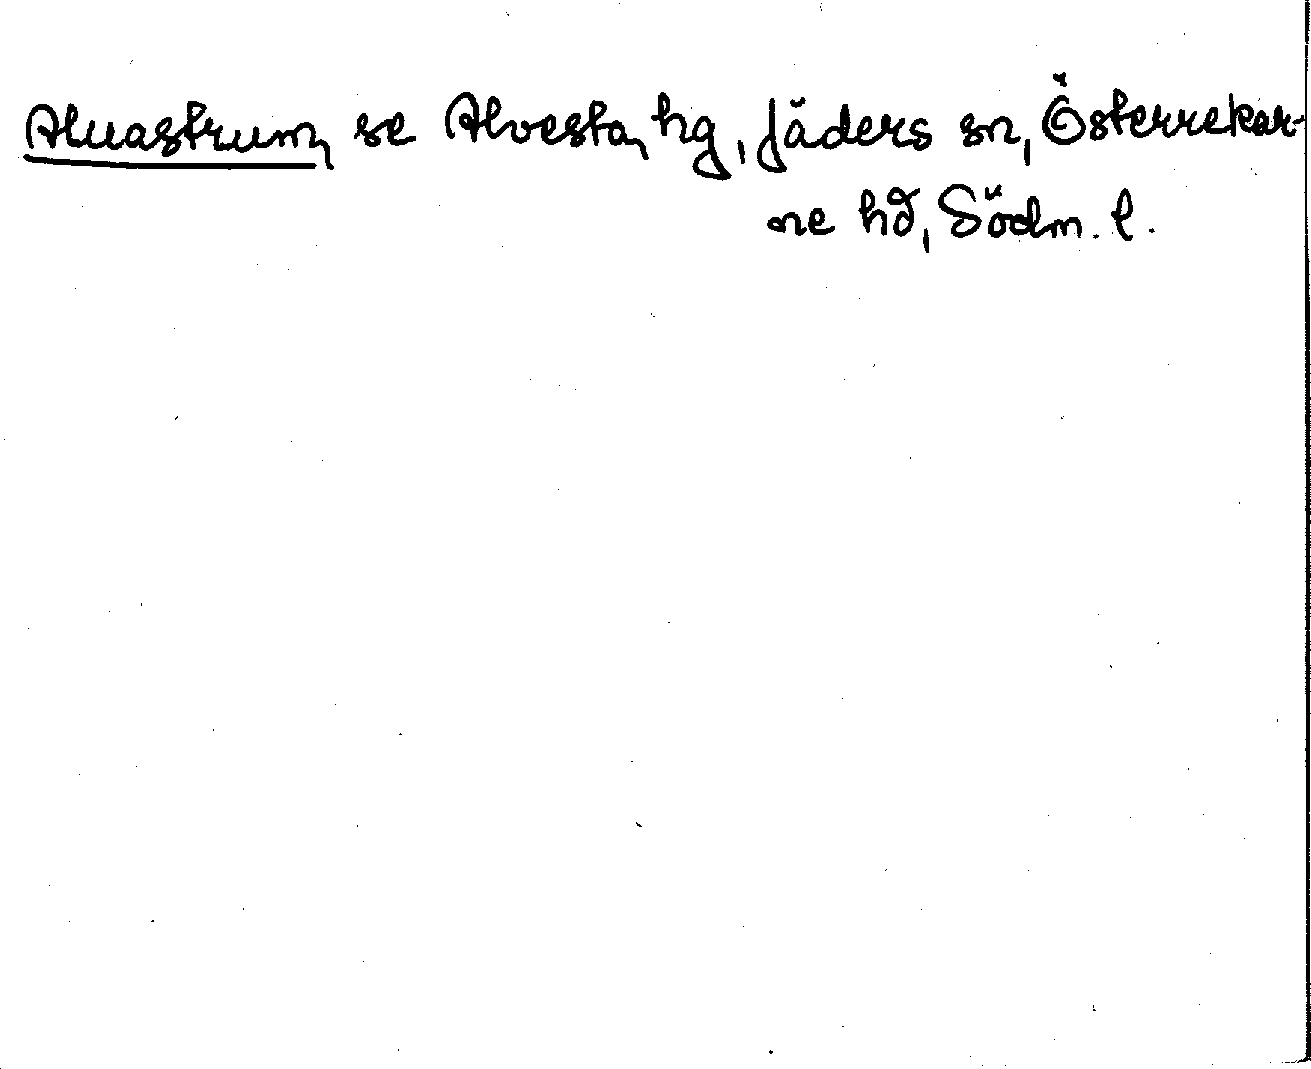 Aluastrum, se Alvesta, hg, Jäders sn, Österrekar-
ne hd, Södm. l.